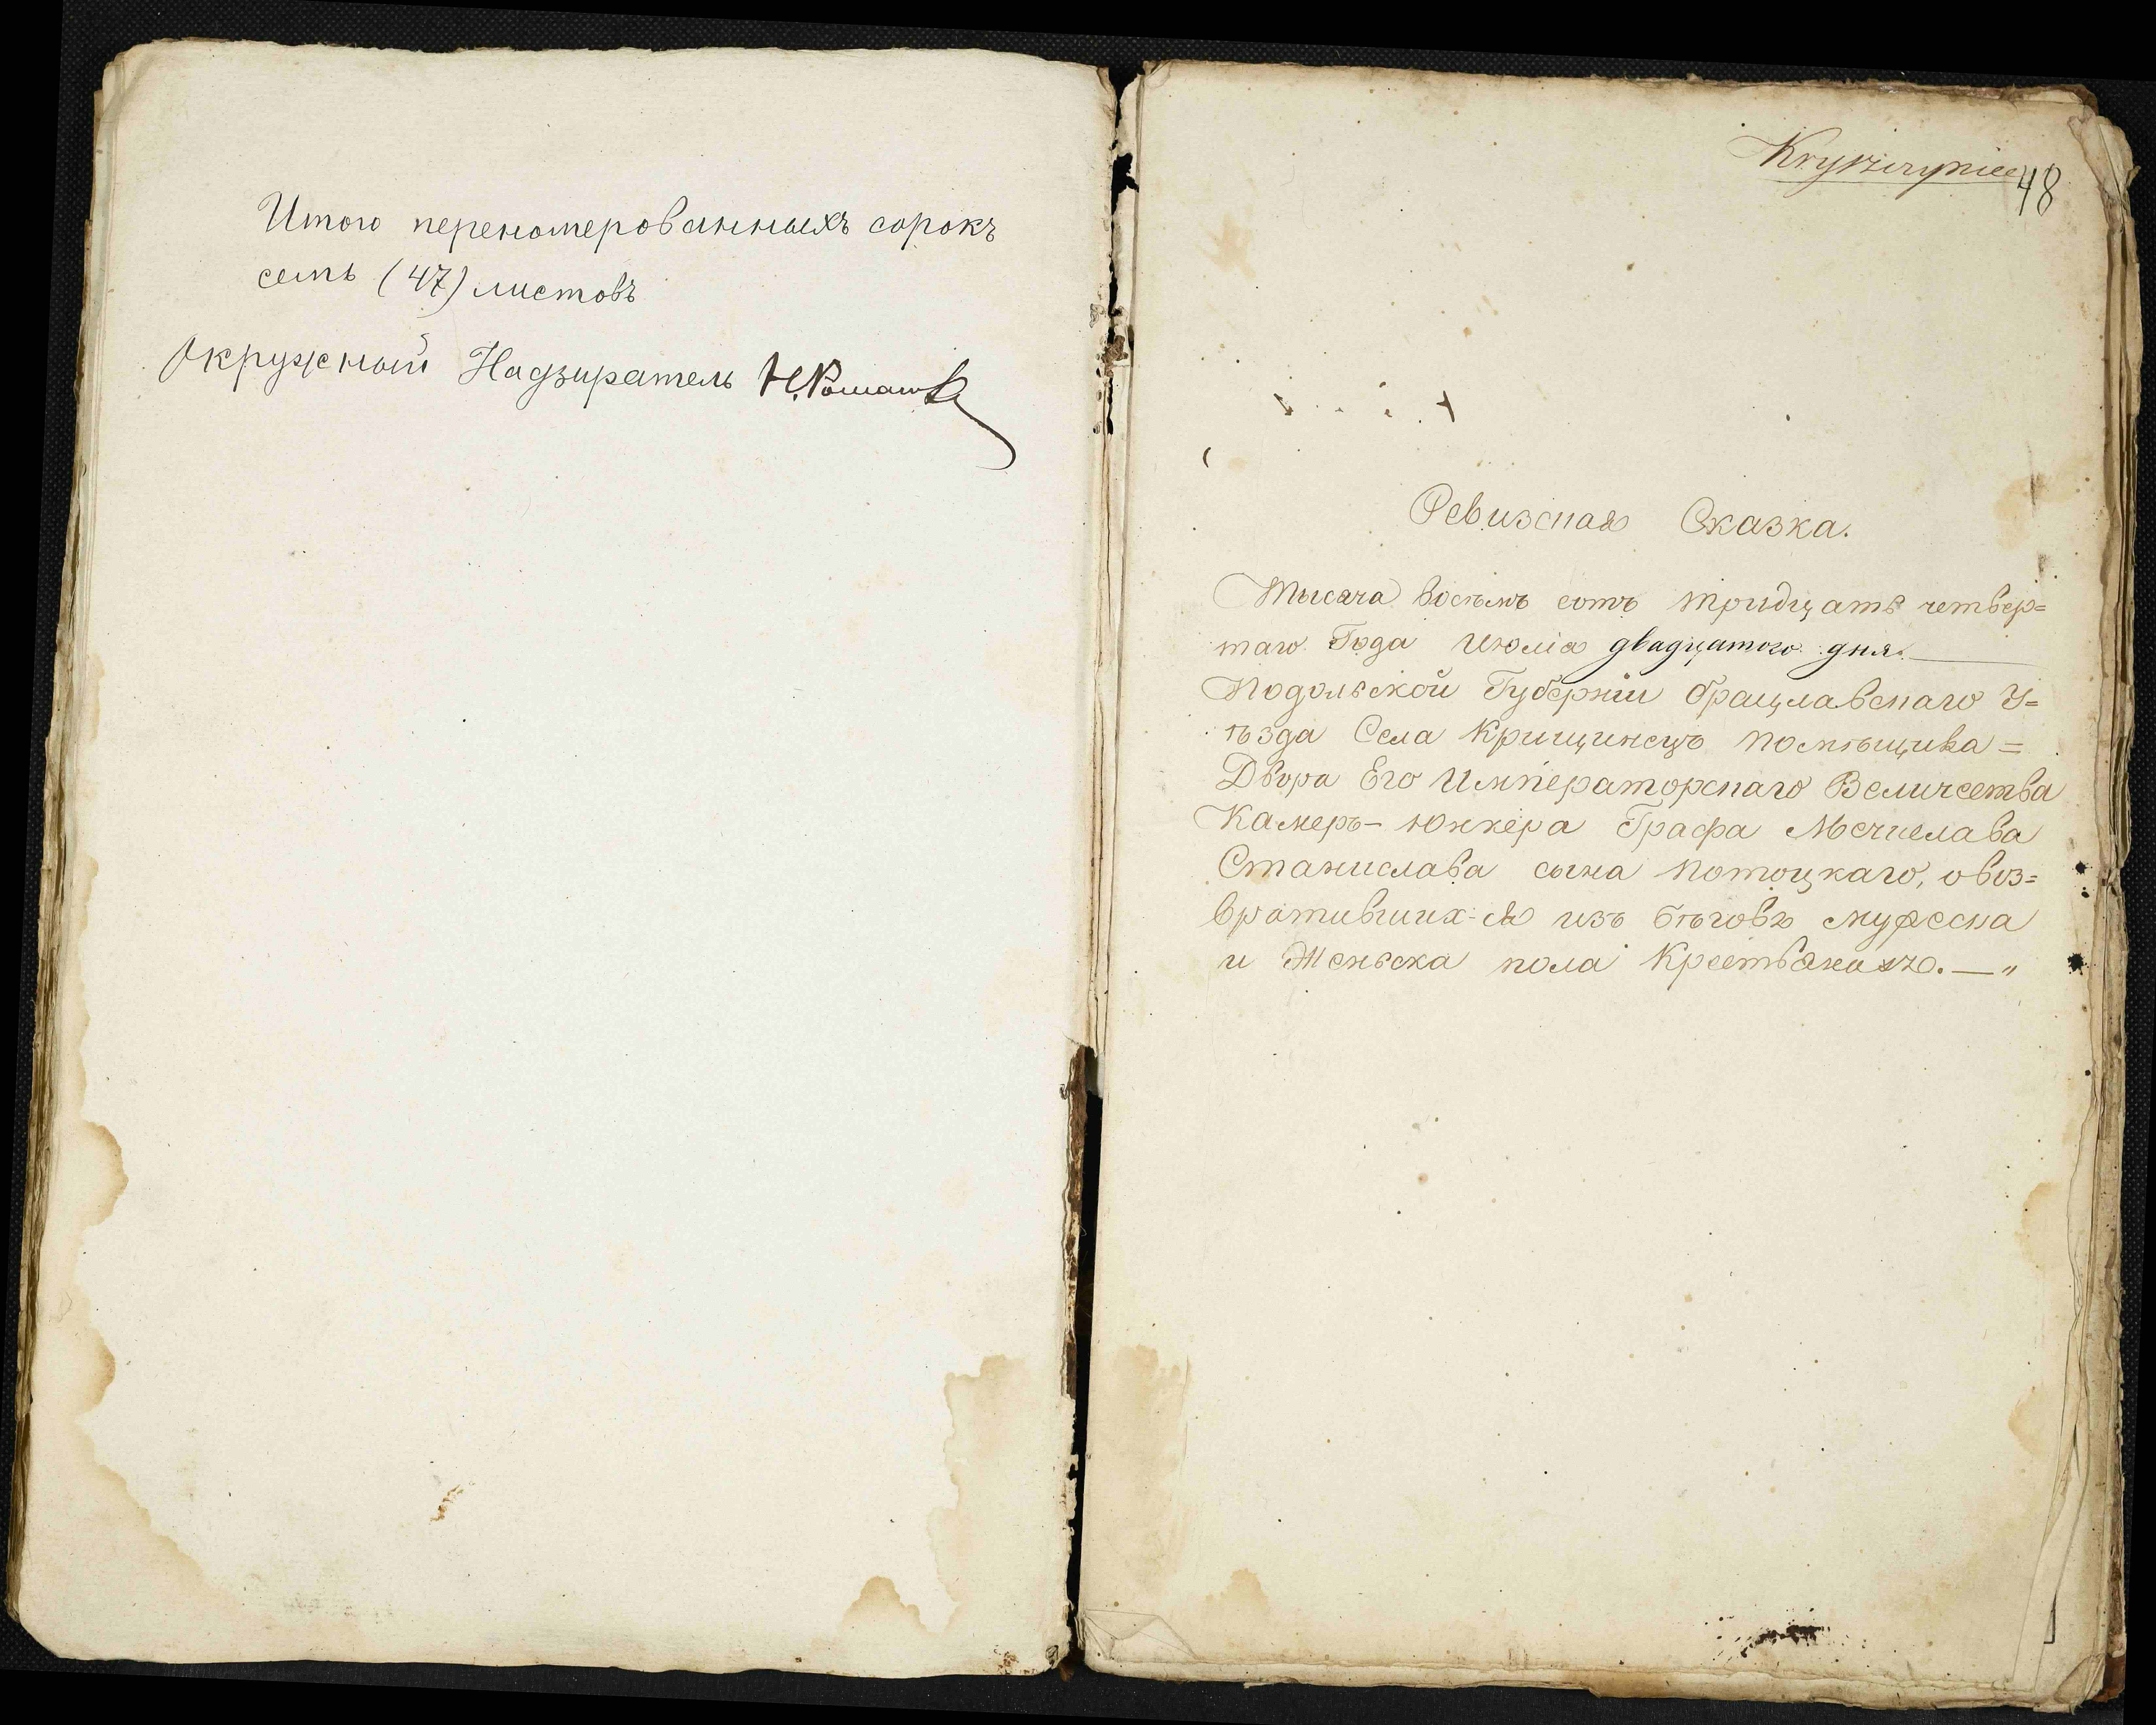 Итого переномерованныхъ сорокъ
семь (47) листовъ
Окружный Надзиратель Н. Романов
Kryszczyniec
48
Ревизская Сказка.
Тысяча восѣмъ сотъ тридцать четвер=
таго Года Июлія двадцатого дня.
Подольской Губерніи Брацлавскаго У=
ѣзда Села Крищинецъ помѣщика=
Двора Его Императорскаго Величества
Камеръ-юнкера Графа Мечислава
Станислава сына Потоцкаго, о воз=
вратившихся изъ бѣговъ мужеска
и Женьска пола Крестьянахъ. — „